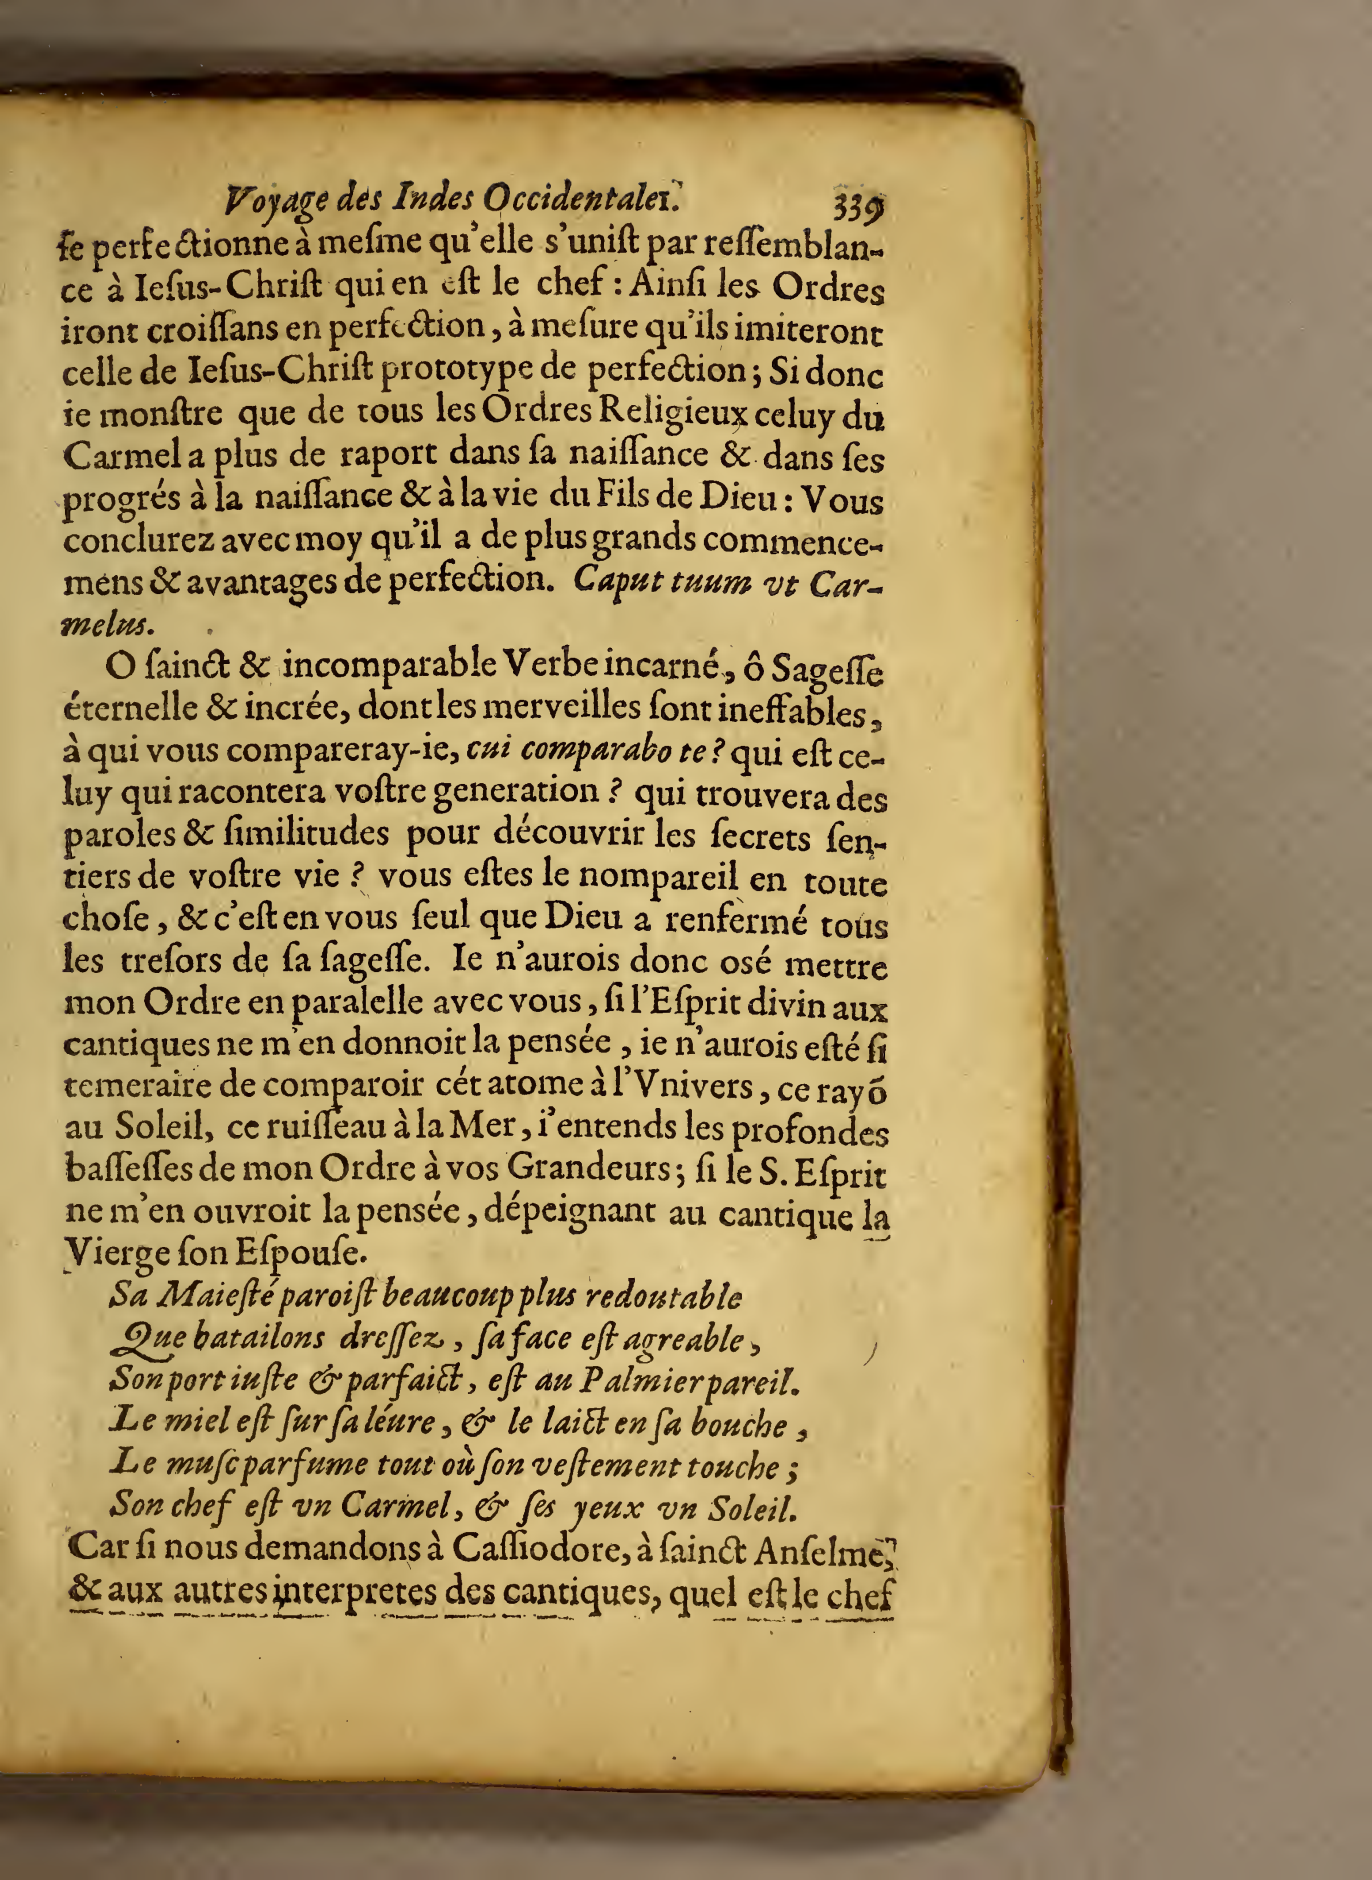 Voyage des Indes Occidentales. 339
ſe perfectionne à meſme qu'elle s'uniſt par reſſemblan-
ce à Ieſus-Chriſt qui en eſt le chef : Ainſi les Ordres
iront croiſſans en perfection, à meſure qu'ils imiteront
celle de Ieſus-Chriſt prototype de perfection ; Si donc
ie monſtre que de tous les Ordres Religieux celuy du
Carmel a plus de raport dans ſa naiſſance & dans ſes
progrés à la naiſſance & à la vie du Fils de Dieu : Vous
conclurez avec moy qu'il a de plus grands commence-
mens & avantages de perfection. Caput tuum vt Car-
melus.
O ſainct & incomparable Verbe incarné, ô Sageſſe
éternelle & incrée, dont les merveilles ſont ineffables,
à qui vous compareray-ie, cui comparabo te ? qui eſt ce-
luy qui racontera voſtre generation ? qui trouvera des
paroles & ſimilitudes pour découvrir les ſecrets ſen-
tiers de voſtre vie ? vous eſtes le nompareil en toute
choſe, & c'eſt en vous ſeul que Dieu a renfermé tous
les treſors de ſa ſageſſe. Ie n'aurois donc osé mettre
mon Ordre en paralelle avec vous, ſi l'Eſprit divin aux
cantiques ne m'en donnoit la pensée, ie n'aurois eſté ſi
temeraire de comparoir cét atome à l'Vnivers, ce rayõ
au Soleil, ce ruiſſeau à la Mer, i'entends les profondes
baſſeſſes de mon Ordre à vos Grandeurs ; ſi le S. Eſprit
ne m'en ouvroit la pensée, dépeignant au cantique la
Vierge ſon Eſpouſe.
Sa Maieſté paroiſt beaucoup plus redoutable
Que batailons dreſſez, ſa face eſt agreable,
Son port iuſte & parfaict, eſt au Palmier pareil.
Le miel eſt ſur ſa léure, & le laict en ſa bouche,
Le muſc parfume tout où ſon veſtement touche ;
Son chef eſt vn Carmel, & ſes yeux vn Soleil.
Car ſi nous demandons à Caſſiodore, à ſainct Anſelme,
& aux autres interpretes des cantiques, quel eſt le chef